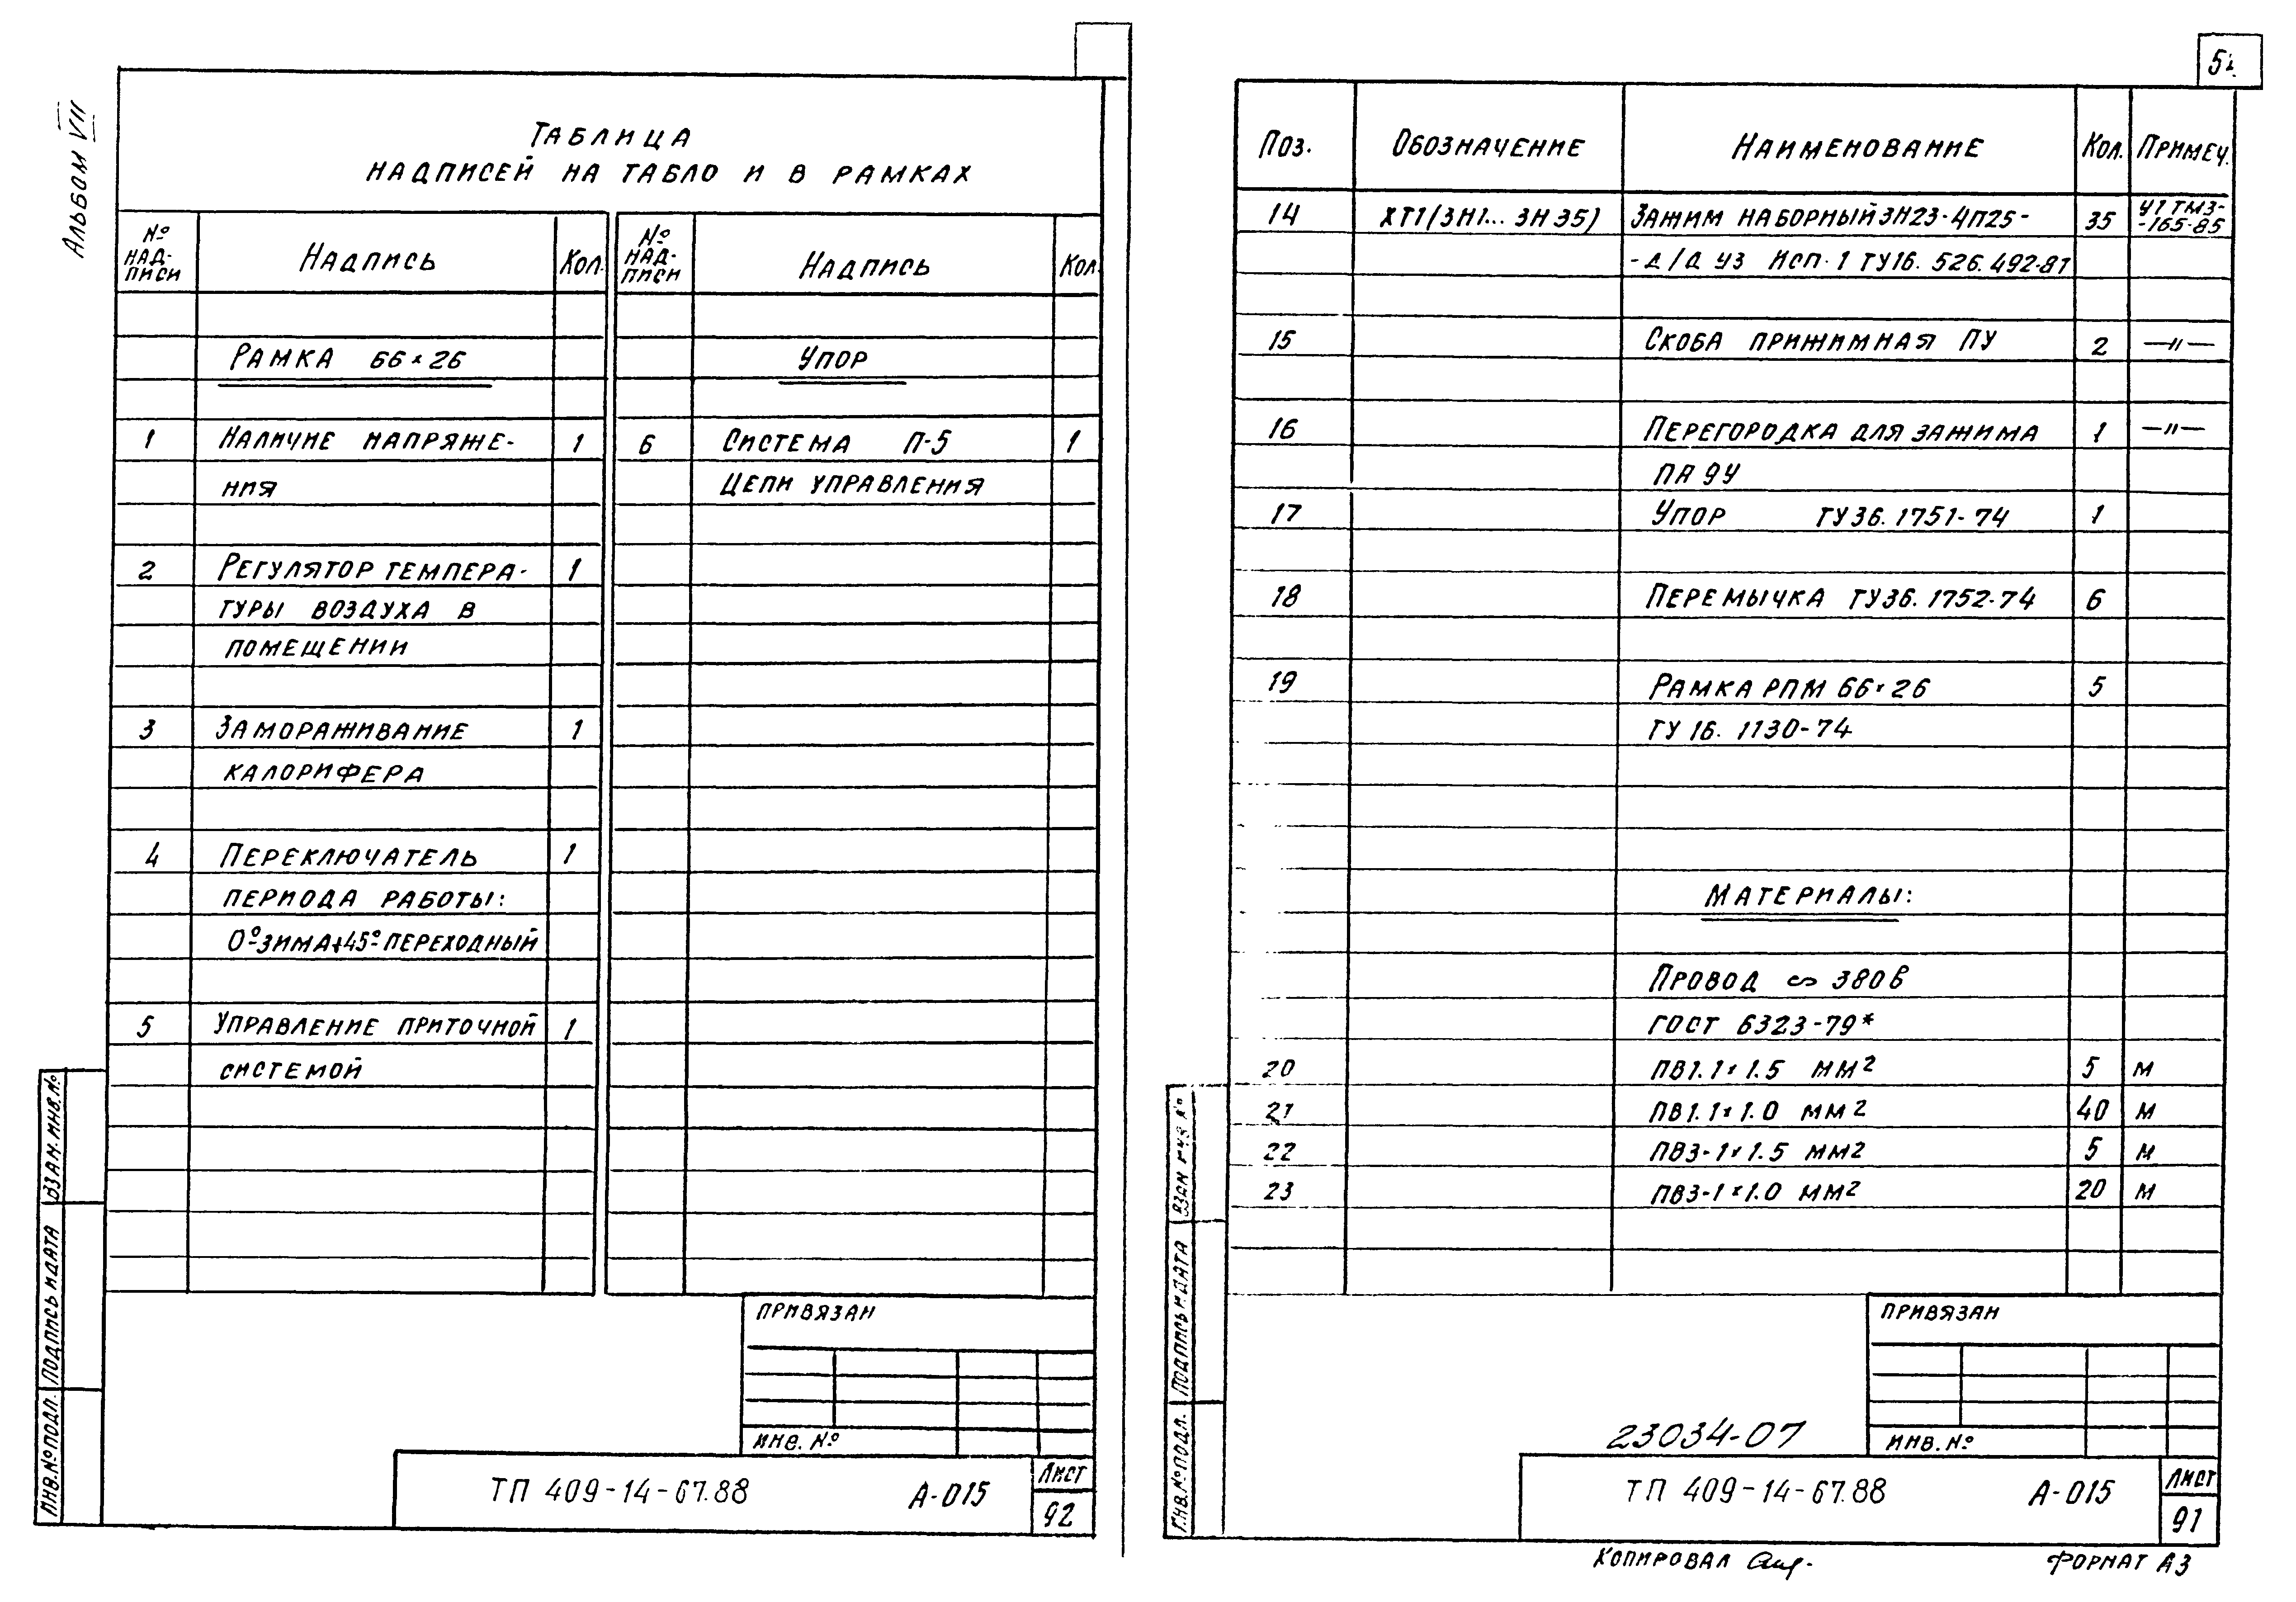 Альбом VII
Таблица
надписей на табло и в рамках
№ надписи Надпись Кол. № надписи Надпись Кол.
Рамка 66×26 Упор
1 Наличие напряже- 1 6 Система П-5 1
ния цепи управления
2 Регулятор темпера- 1
туры воздуха в
помещении
3 Замораживание 1
калорифера
4 Переключатель 1
периода работы:
0° зима +45° переходный
5 Управление приточной 1
системой
Привязан
Инв. №
ТП 409-14-67.88 А-015 Лист
92
Взам. инв. №
Подпись и дата
Инв. № подл.
Поз. Обозначение Наименование Кол. Примеч.
14 ХТ1 (ЗН1... ЗН35) Зажим наборный ЗН23-4П25- 35 У1 ТМ3-
-165-85
-Д/Д У3 Исп. 1 ТУ16. 526. 492-81
15 Скоба прижимная ПУ 2 —"—
16 Перегородка для зажима 1 —"—
ПА 9У
17 Упор ТУ36. 1751-74 1
18 Перемычка ТУ36. 1752-74 6
19 Рамка РПМ 66×26 5
ТУ 16. 1130-74
Материалы:
Провод ~ 380в
ГОСТ 6323-79*
20 ПВ1. 1×1.5 мм2 5 м
21 ПВ1. 1×1.0 мм2 40 м
22 ПВ3-1×1.5 мм2 5 м
23 ПВ3-1×1.0 мм2 20 м
Привязан
Инв. №
23034-07
ТП 409-14-67.88 А-015 Лист
91
Взам инв №
Подпись и дата
Инв. № подл.
Копировал
Формат А3